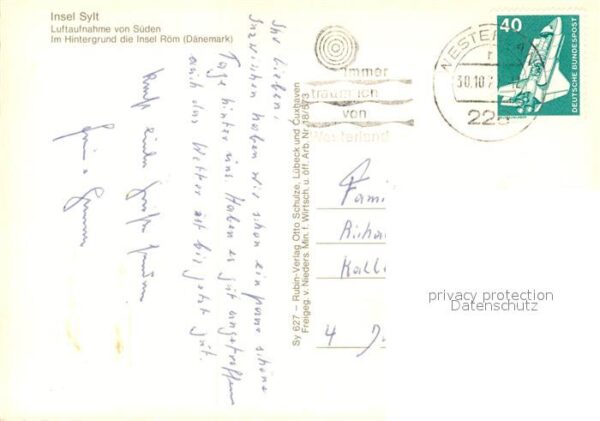 Insel Sylt
Luftaufnahme von Süden
Im Hintergrund die Insel Röm (Dänemark)
Ihr Lieben!
Inzwischen haben wir schon ein paar schöne
Tage hinter uns. Haben es gut angetroffen
auch das Wetter ist bis jetzt gut.
Sy 627 – Rubin-Verlag Otto Schulze, Lübeck und Cuxhaven
Freigeg. v. Nieders. Min. f. Wirtsch. u. öff. Arb. Nr. 18/573
immer
von
Westerland
WESTER
30.10.
228
40
DEUTSCHE BUNDESPOST
Fami
4 D
privacy protection
Datenschutz